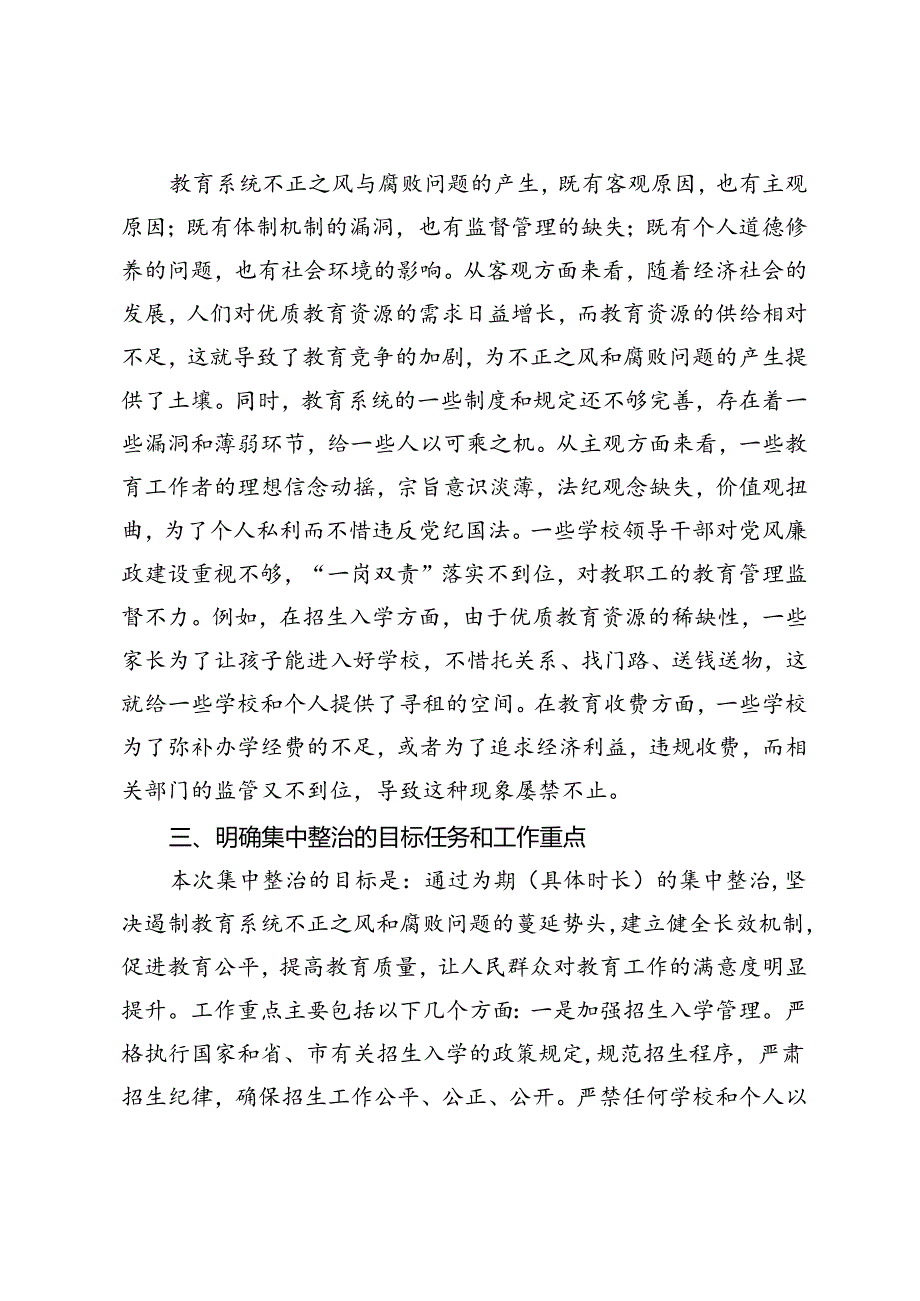 教育系统不正之风与腐败问题的产生，既有客观原因，也有主观
原因；既有体制机制的漏洞，也有监督管理的缺失；既有个人道德修
养的问题，也有社会环境的影响。从客观方面来看，随着经济社会的
发展，人们对优质教育资源的需求日益增长，而教育资源的供给相对
不足，这就导致了教育竞争的加剧，为不正之风和腐败问题的产生提
供了土壤。同时，教育系统的一些制度和规定还不够完善，存在着一
些漏洞和薄弱环节，给一些人以可乘之机。从主观方面来看，一些教
育工作者的理想信念动摇，宗旨意识淡薄，法纪观念缺失，价值观扭
曲，为了个人私利而不惜违反党纪国法。一些学校领导干部对党风廉
政建设重视不够，“一岗双责”落实不到位，对教职工的教育管理监
督不力。例如，在招生入学方面，由于优质教育资源的稀缺性，一些
家长为了让孩子能进入好学校，不惜托关系、找门路、送钱送物，这
就给一些学校和个人提供了寻租的空间。在教育收费方面，一些学校
为了弥补办学经费的不足，或者为了追求经济利益，违规收费，而相
关部门的监管又不到位，导致这种现象屡禁不止。
三、明确集中整治的目标任务和工作重点
本次集中整治的目标是：通过为期（具体时长）的集中整治,坚
决遏制教育系统不正之风和腐败问题的蔓延势头,建立健全长效机制,
促进教育公平,提高教育质量,让人民群众对教育工作的满意度明显
提升。工作重点主要包括以下几个方面：一是加强招生入学管理。严
格执行国家和省、市有关招生入学的政策规定,规范招生程序，严肃
招生纪律，确保招生工作公平、公正、公开。严禁任何学校和个人以